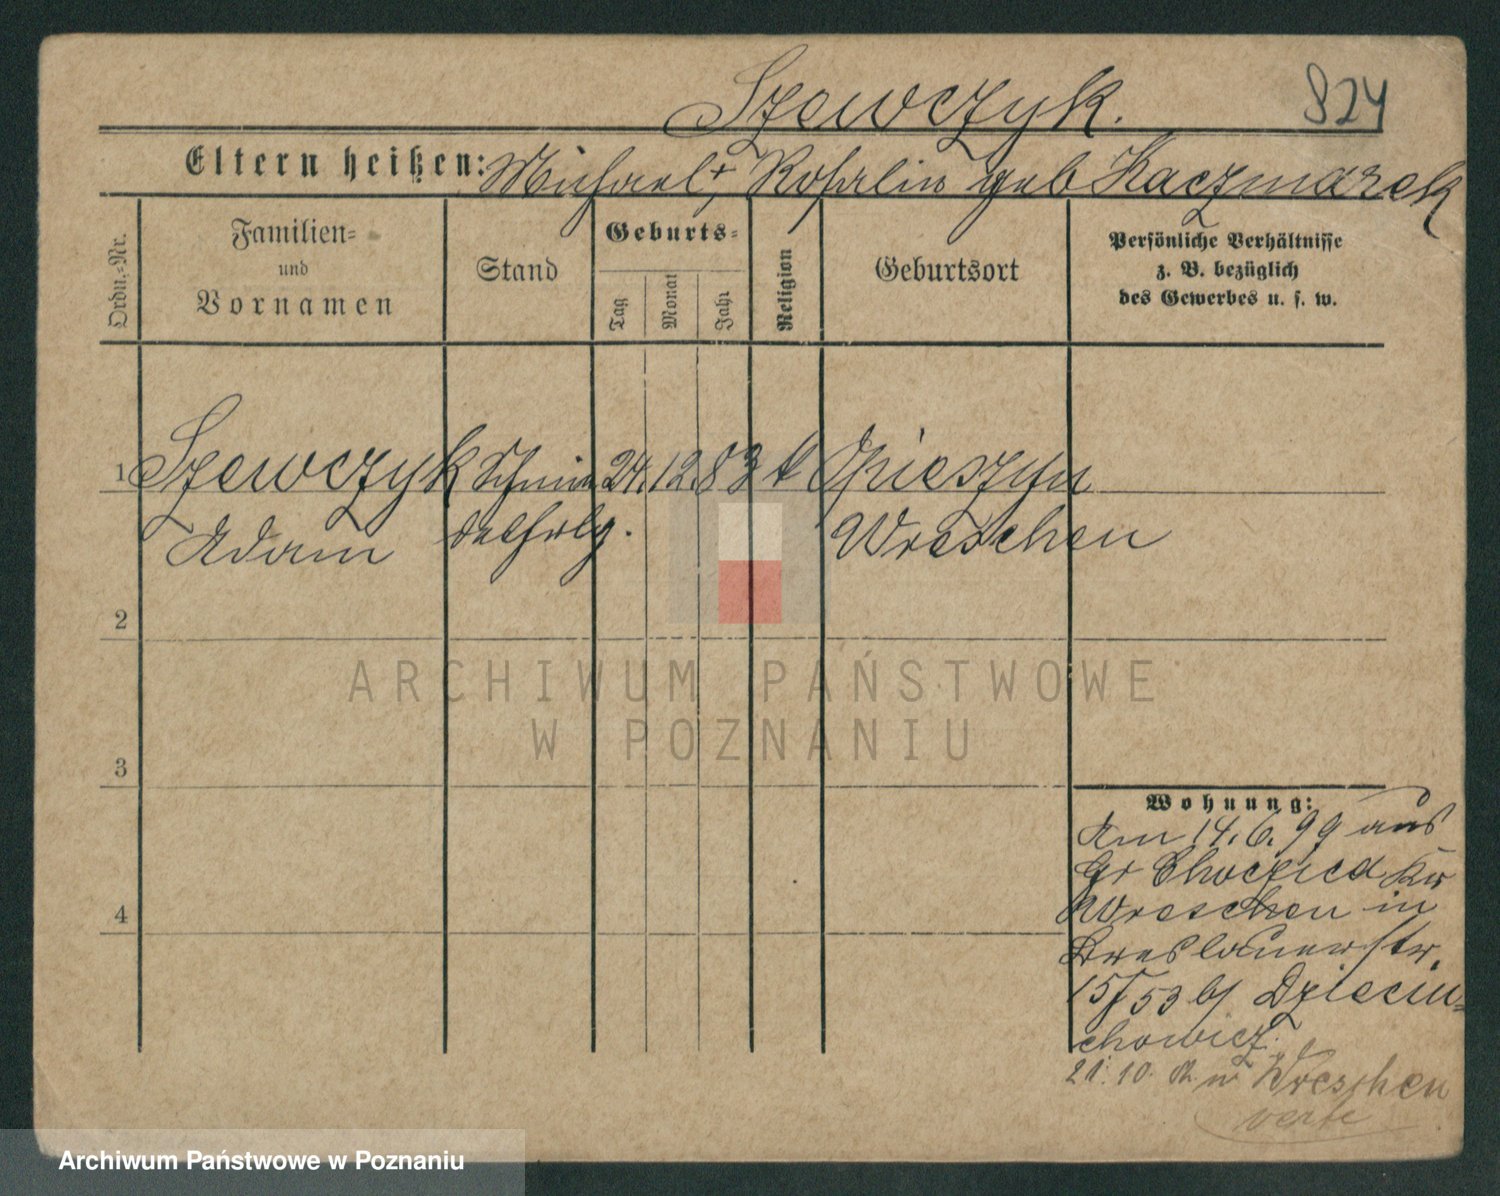 Szewczyk.
824
Eltern heißen: Michael + Rosalie geb Kaczmarek
Ordn.-Nr.
Familien-
und
Vornamen
Stand
Geburts-
Tag
Monat
Jahr
Religion
Geburtsort
Persönliche Verhältnisse
z. B. bezüglich
des Gewerbes u. s. w.
1 Szewczyk Schnei 24. 12. 83 k Opieszyn
Adam derlehrlg. Wreschen
2
3
4
ARCHIWUM PAŃSTWOWE
W POZNANIU
Wohnung:
Am 14. 6. 99 aus
Gr Chocicza Kr
Wreschen in
Breslauerstr.
15/53 b/ Dziecin-
chowicz.
21. 10. n Wreschen
verte
Archiwum Państwowe w Poznaniu